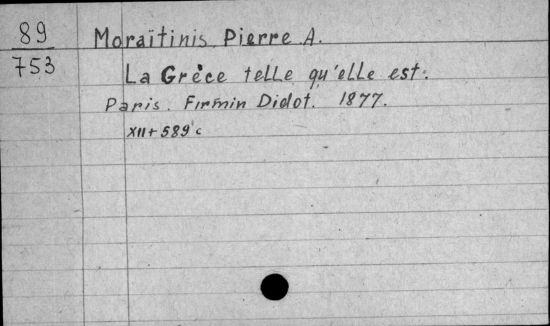 89
753
Moraïtinis, Pierre A.
La Grèce telle qu'elle est.
Paris. Firmin Didot. 1877.
XII + 589 c